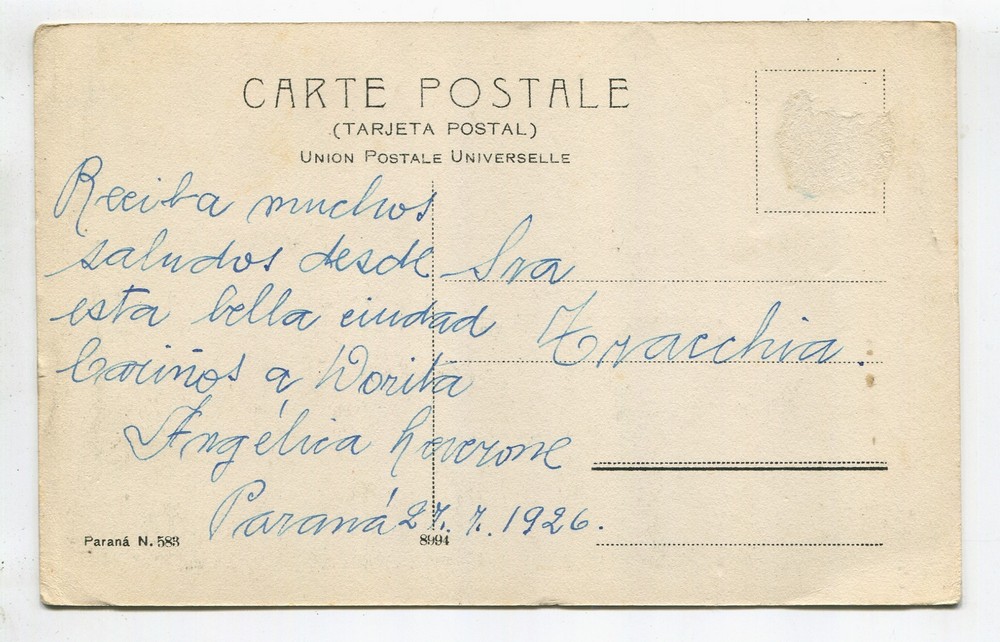 CARTE POSTALE
(TARJETA POSTAL)
UNION POSTALE UNIVERSELLE
Reciba muchos
saludos desde
esta bella ciudad
Cariños a Dorita
Angélica
Paraná 27.7.1926.
Sra
Tracchia.
Paraná N. 583
8994